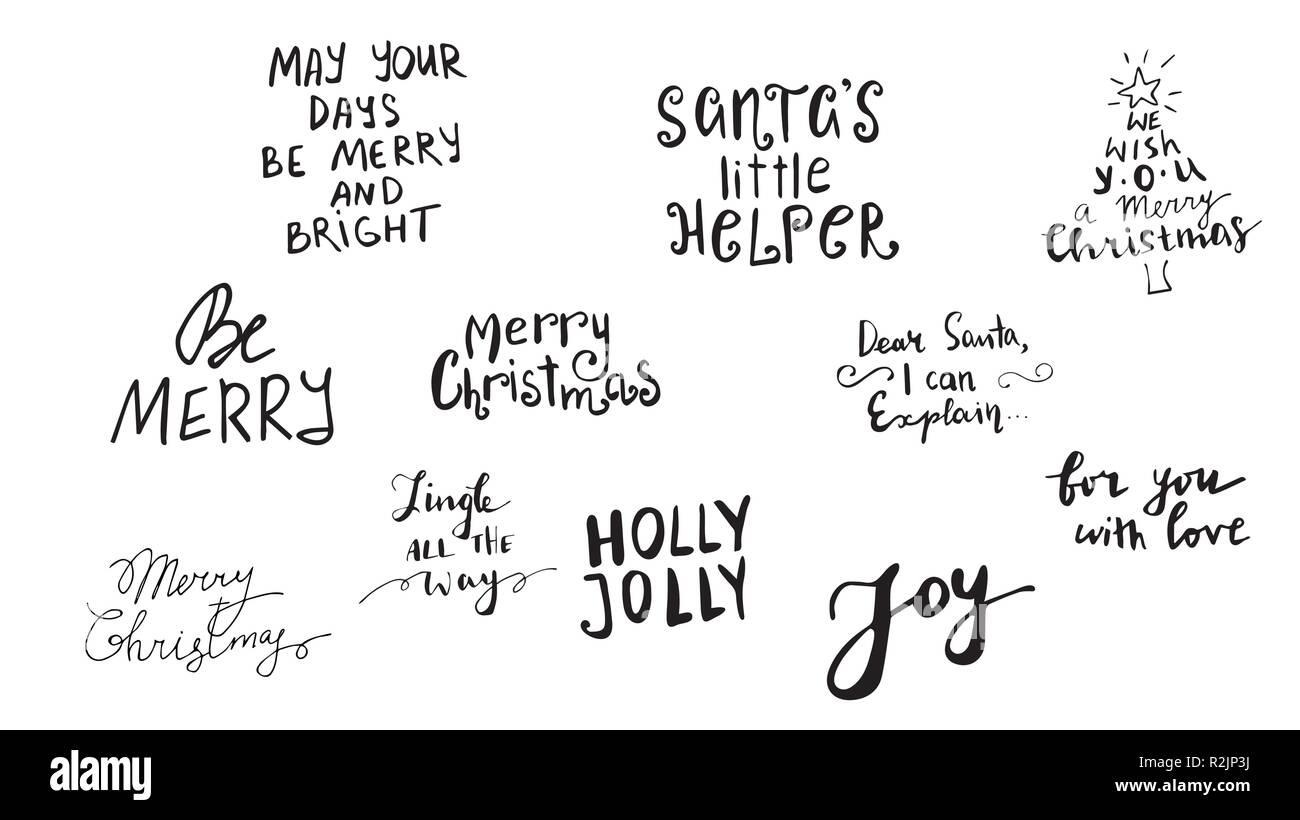 MAY YOUR
DAYS
BE MERRY
AND
BRIGHT
SANTA'S
little
HELPER
WE
WISH
Y.O.U
a Merry
Christmas
Be
MERRY
Merry
Christmas
Dear Santa,
I can
Explain...
Jingle
ALL THE
Way
HOLLY
JOLLY
for you
with love
Merry
Christmas
Joy
a
alamy
Image ID: R2JPJ3
www.alamy.com